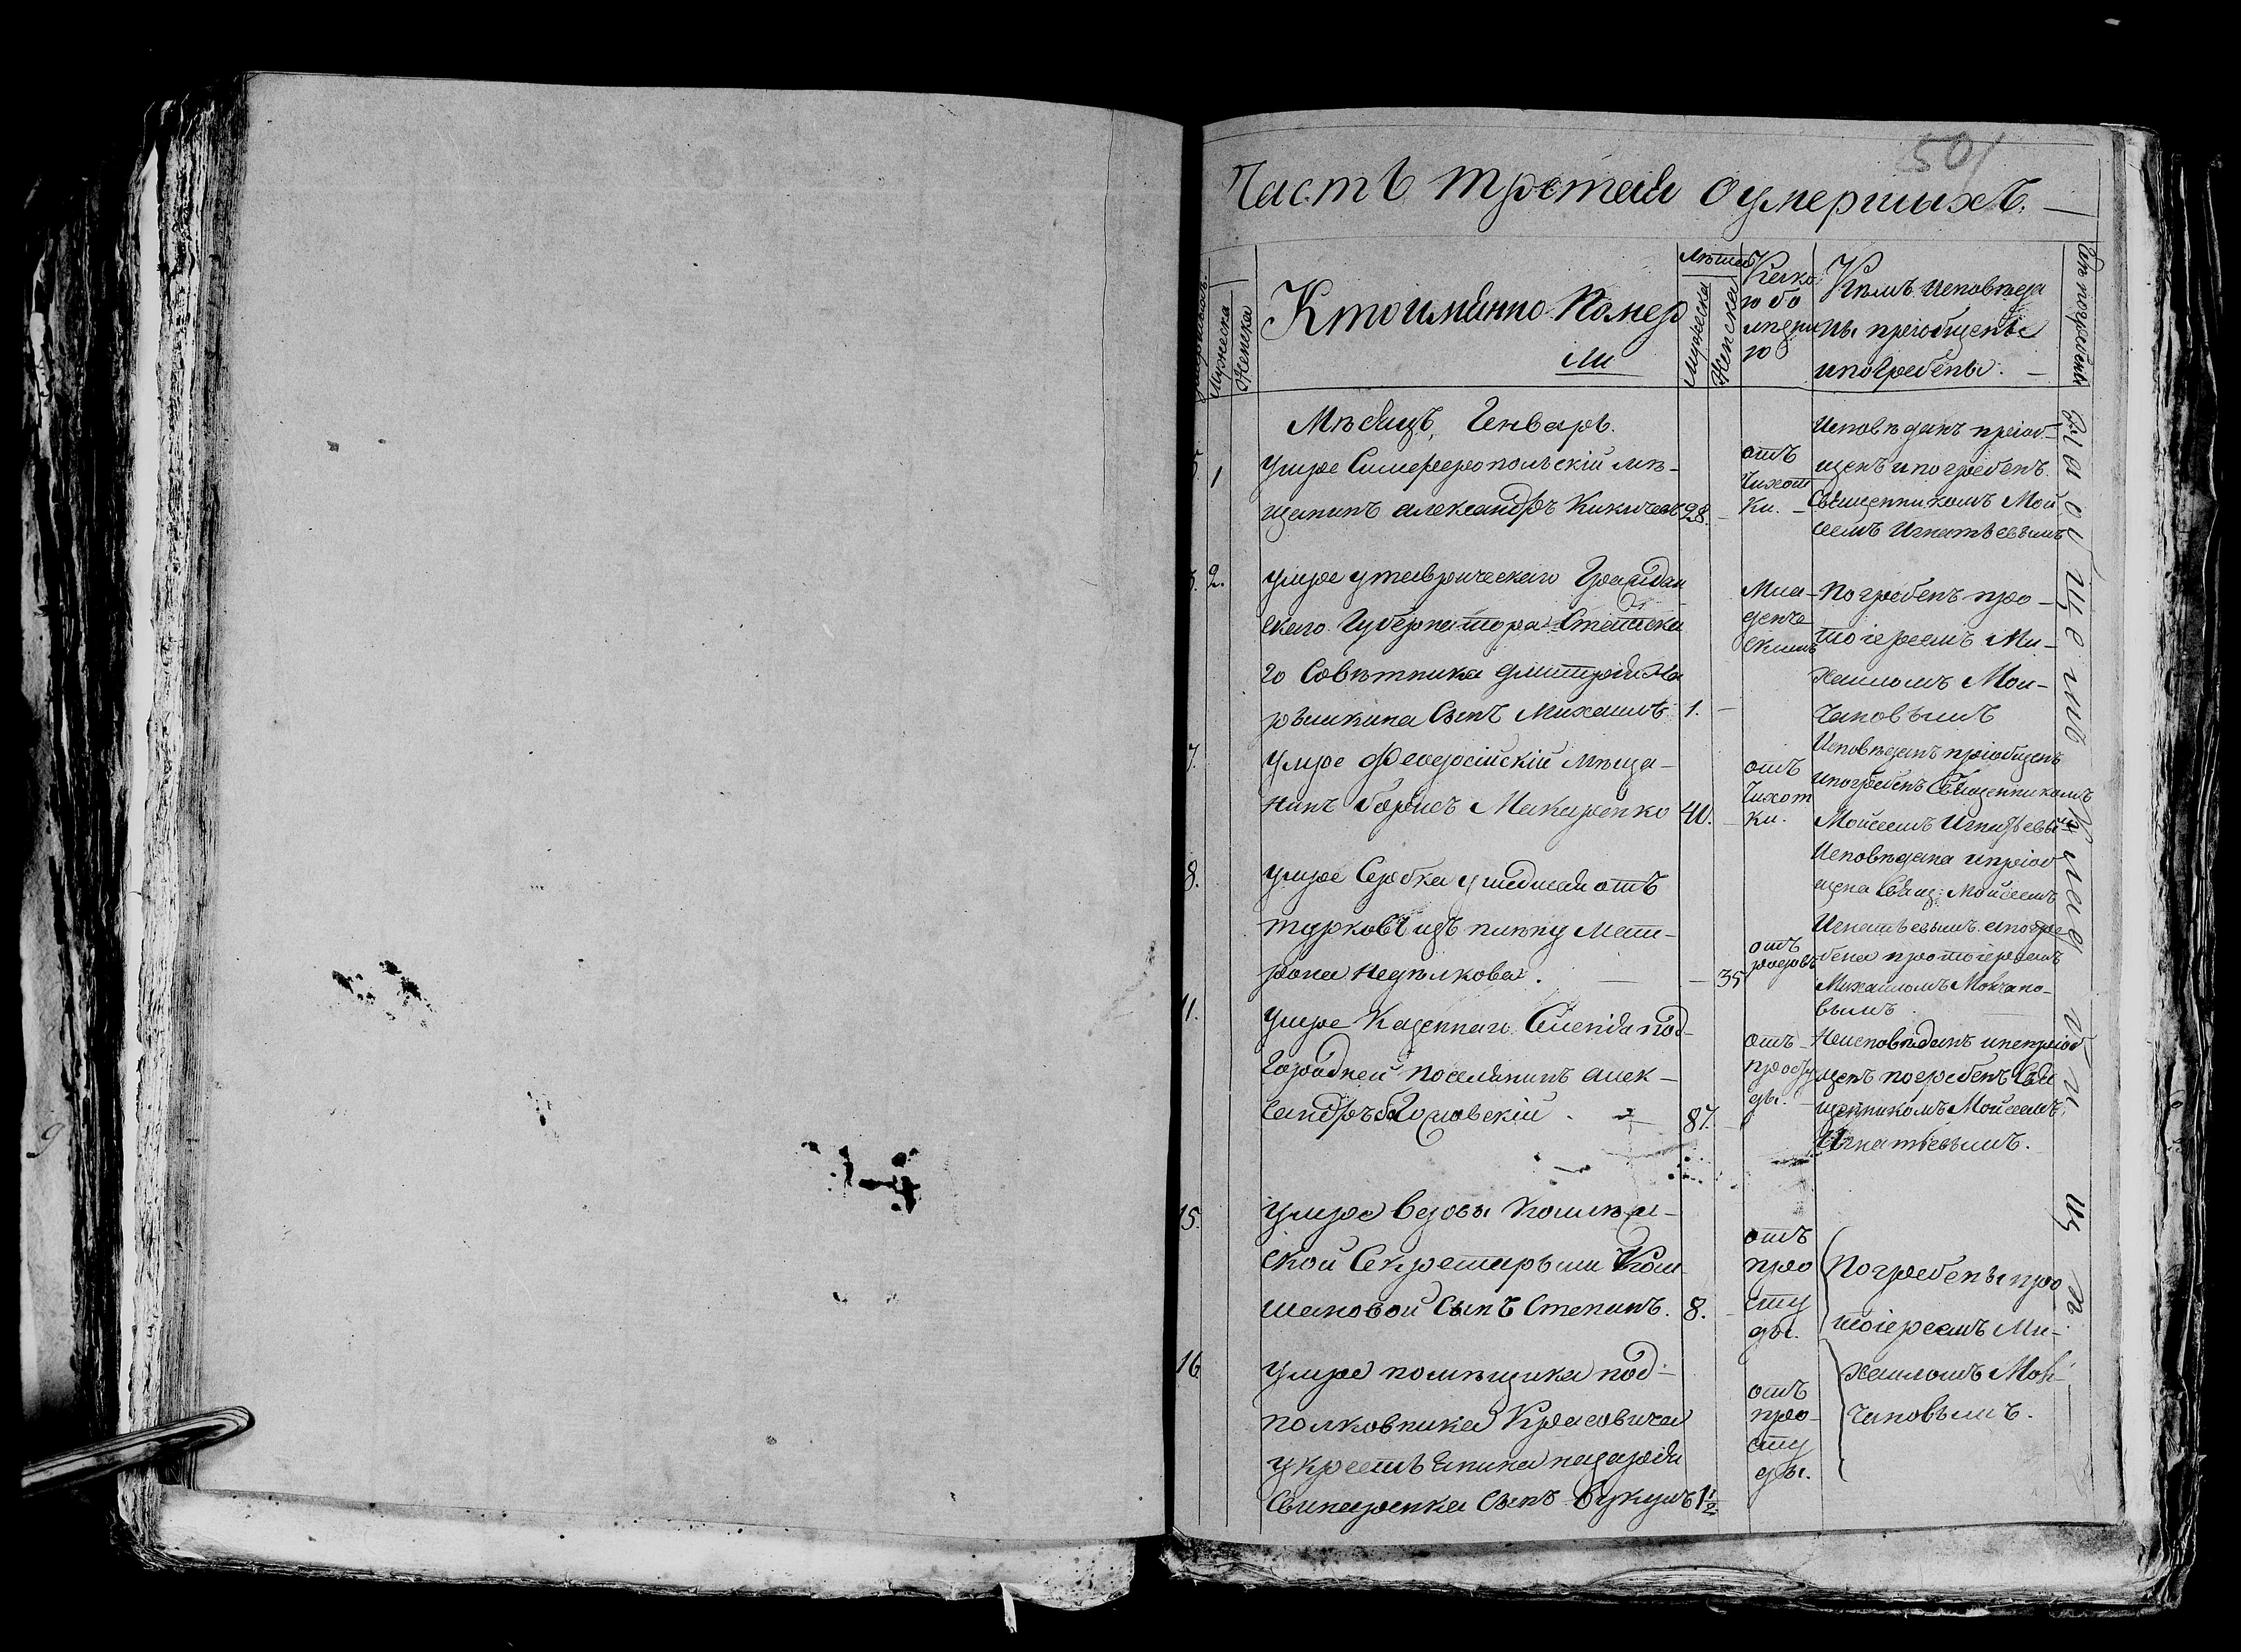 501
Часть третья оумершихъ.
Мужеска
Женска
Кто имянно Помер
ли
Лѣта
Мужеска
Женска
Како
го бо
лѣзни
ю
Кѣмъ исповѣда
ны пріобщены
и погребены.
Гдѣ погребены
Мѣсяцъ Генварь.
1
умре Симферопольскій мѣ-
щанинъ александръ
28.
отъ
Чихот
ки.
Исповѣданъ пріоб-
щенъ и погребенъ
Священникомъ Мои
сеемъ Игнатьевымъ
2.
умре у таврическаго Граждан
скаго Губернатора Статска
го Совѣтника дмитрія На
рышкина Сынъ Михаилъ
1.
Мла-
денче
скимъ
Погребенъ про-
тоіереемъ Ми-
хаиломъ Мон-
чановымъ
7.
умре Феодосійскій мѣща-
нинъ борисъ Макаренко
40.
отъ
Чихот
ки.
Исповѣданъ пріобщенъ
и погребенъ Священникомъ
Моисеемъ Игнатьевымъ
8.
умре Сербка ушедшая отъ
турковъ изъ плѣну Мат-
рона Недѣлкова.
35
отъ
родовъ
Исповѣдана и пріоб
щена Свящ: Моисеемъ
Игнатьевымъ. и погре
бена протоіереемъ
Михаиломъ Мончано-
вымъ.
11.
умре Казеннаго Селенія под-
городней поселянинъ алек-
сандръ
87.
отъ
просту
ды.
Неисповѣданъ и непріоб
щенъ погребенъ Свя
щенникомъ Моисеемъ
Игнатьевымъ.
15.
умре вдовы
ской Секретарьши Кол
шановой Сынъ Степанъ.
8.
отъ
про
сту
ды.
Погребены про
тоіереемъ Ми-
хаиломъ Мон-
чановымъ.
16
умре помѣщика под-
полковника Красовича
у крестьянина назарія
Винаренка Сынъ
1 1/2
отъ
про-
сту
ды.
На общемъ кладбищи